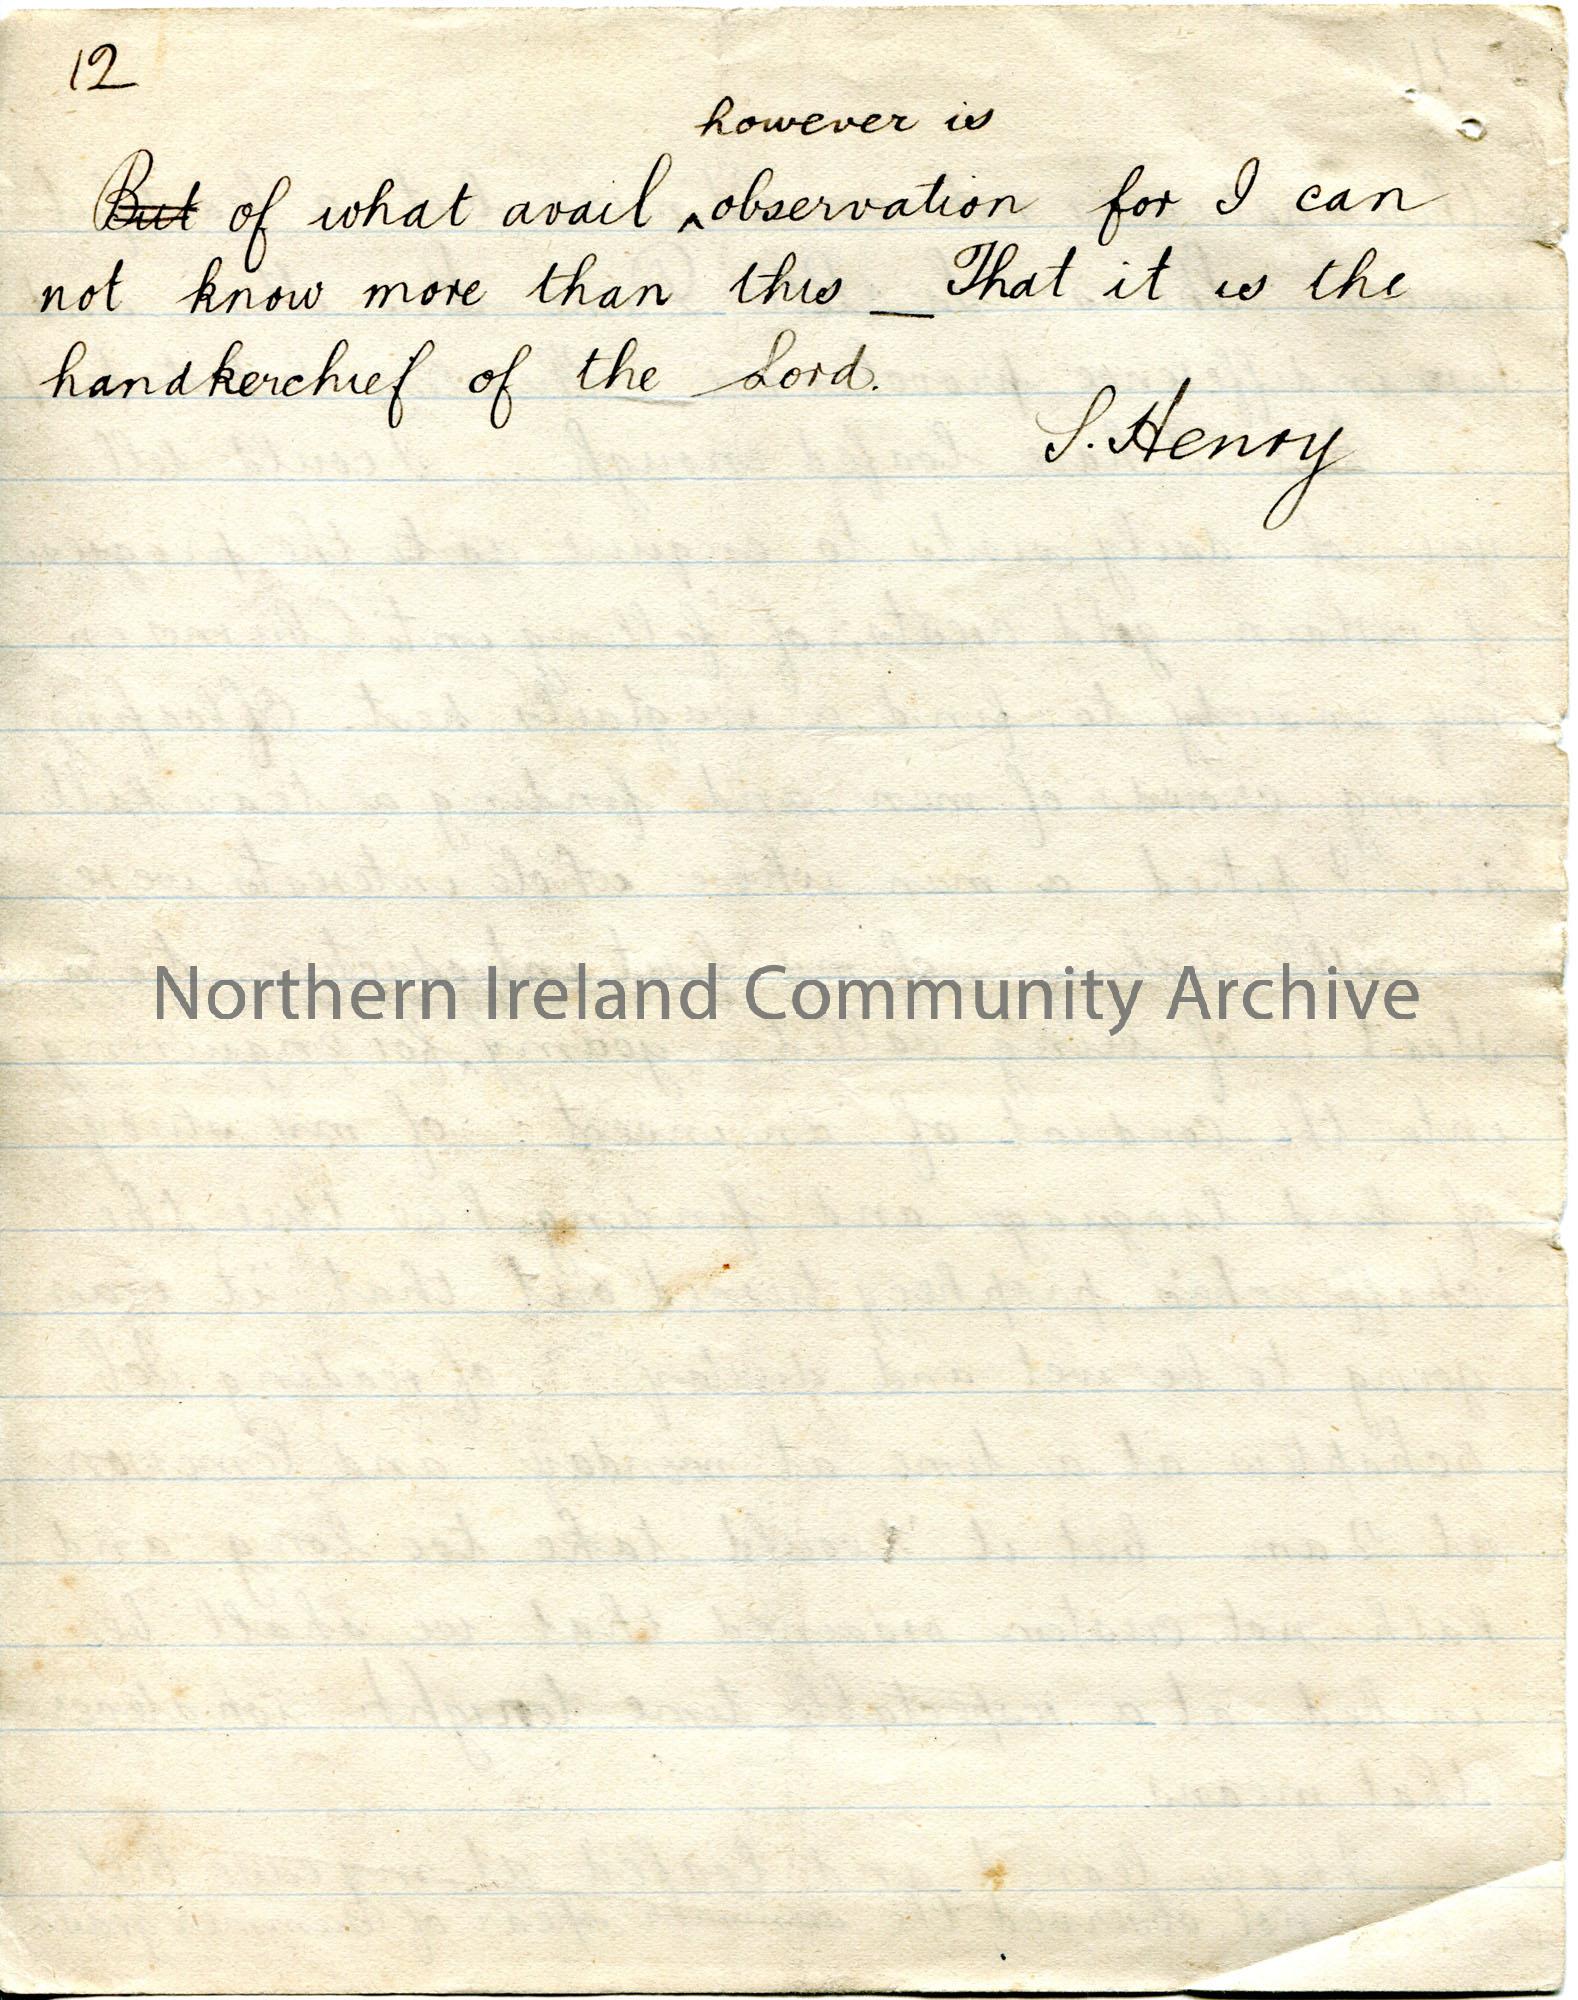 12
however is
But of what avail ^ observation for I can
not know more than this _ That it is the
handkerchief of the Lord.
S. Henry
Northern Ireland Community Archive